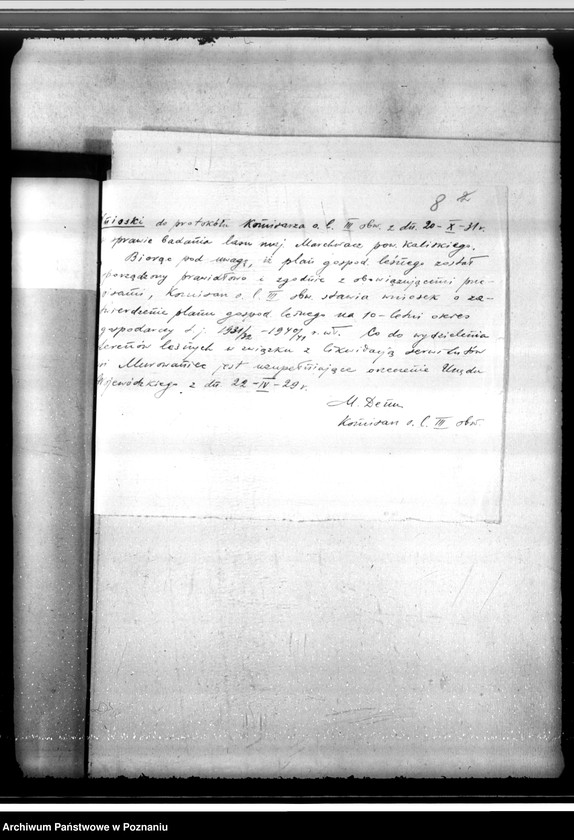 8
Wnioski do protokółu Komisarza o. l. III obw. z dn. 20-X-31 r.
sprawie badania lasu maj. Marchwacz pow. Kaliskiego.
Biorąc pod uwagę, iż plan gospod. leśnego został
sporządzony prawidłowo i zgodnie z obowiązującemi prze-
pisami, Komisarz o. l. III obw. stawia wniosek o za-
twierdzenie planu gospod. leśnego na 10-letni okres
gospodarczy t. j. 1931/32 - 1940/41 r. wł. Co do wydzielenia
terenów leśnych w związku z likwidacją serwitutów
Murowaniec jest uzupełniające orzeczenie Urzędu
Wojewódzkiego z dn. 22-IV-29 r.
M.
Komisarz o. l. III obw.
Archiwum Państwowe w Poznaniu